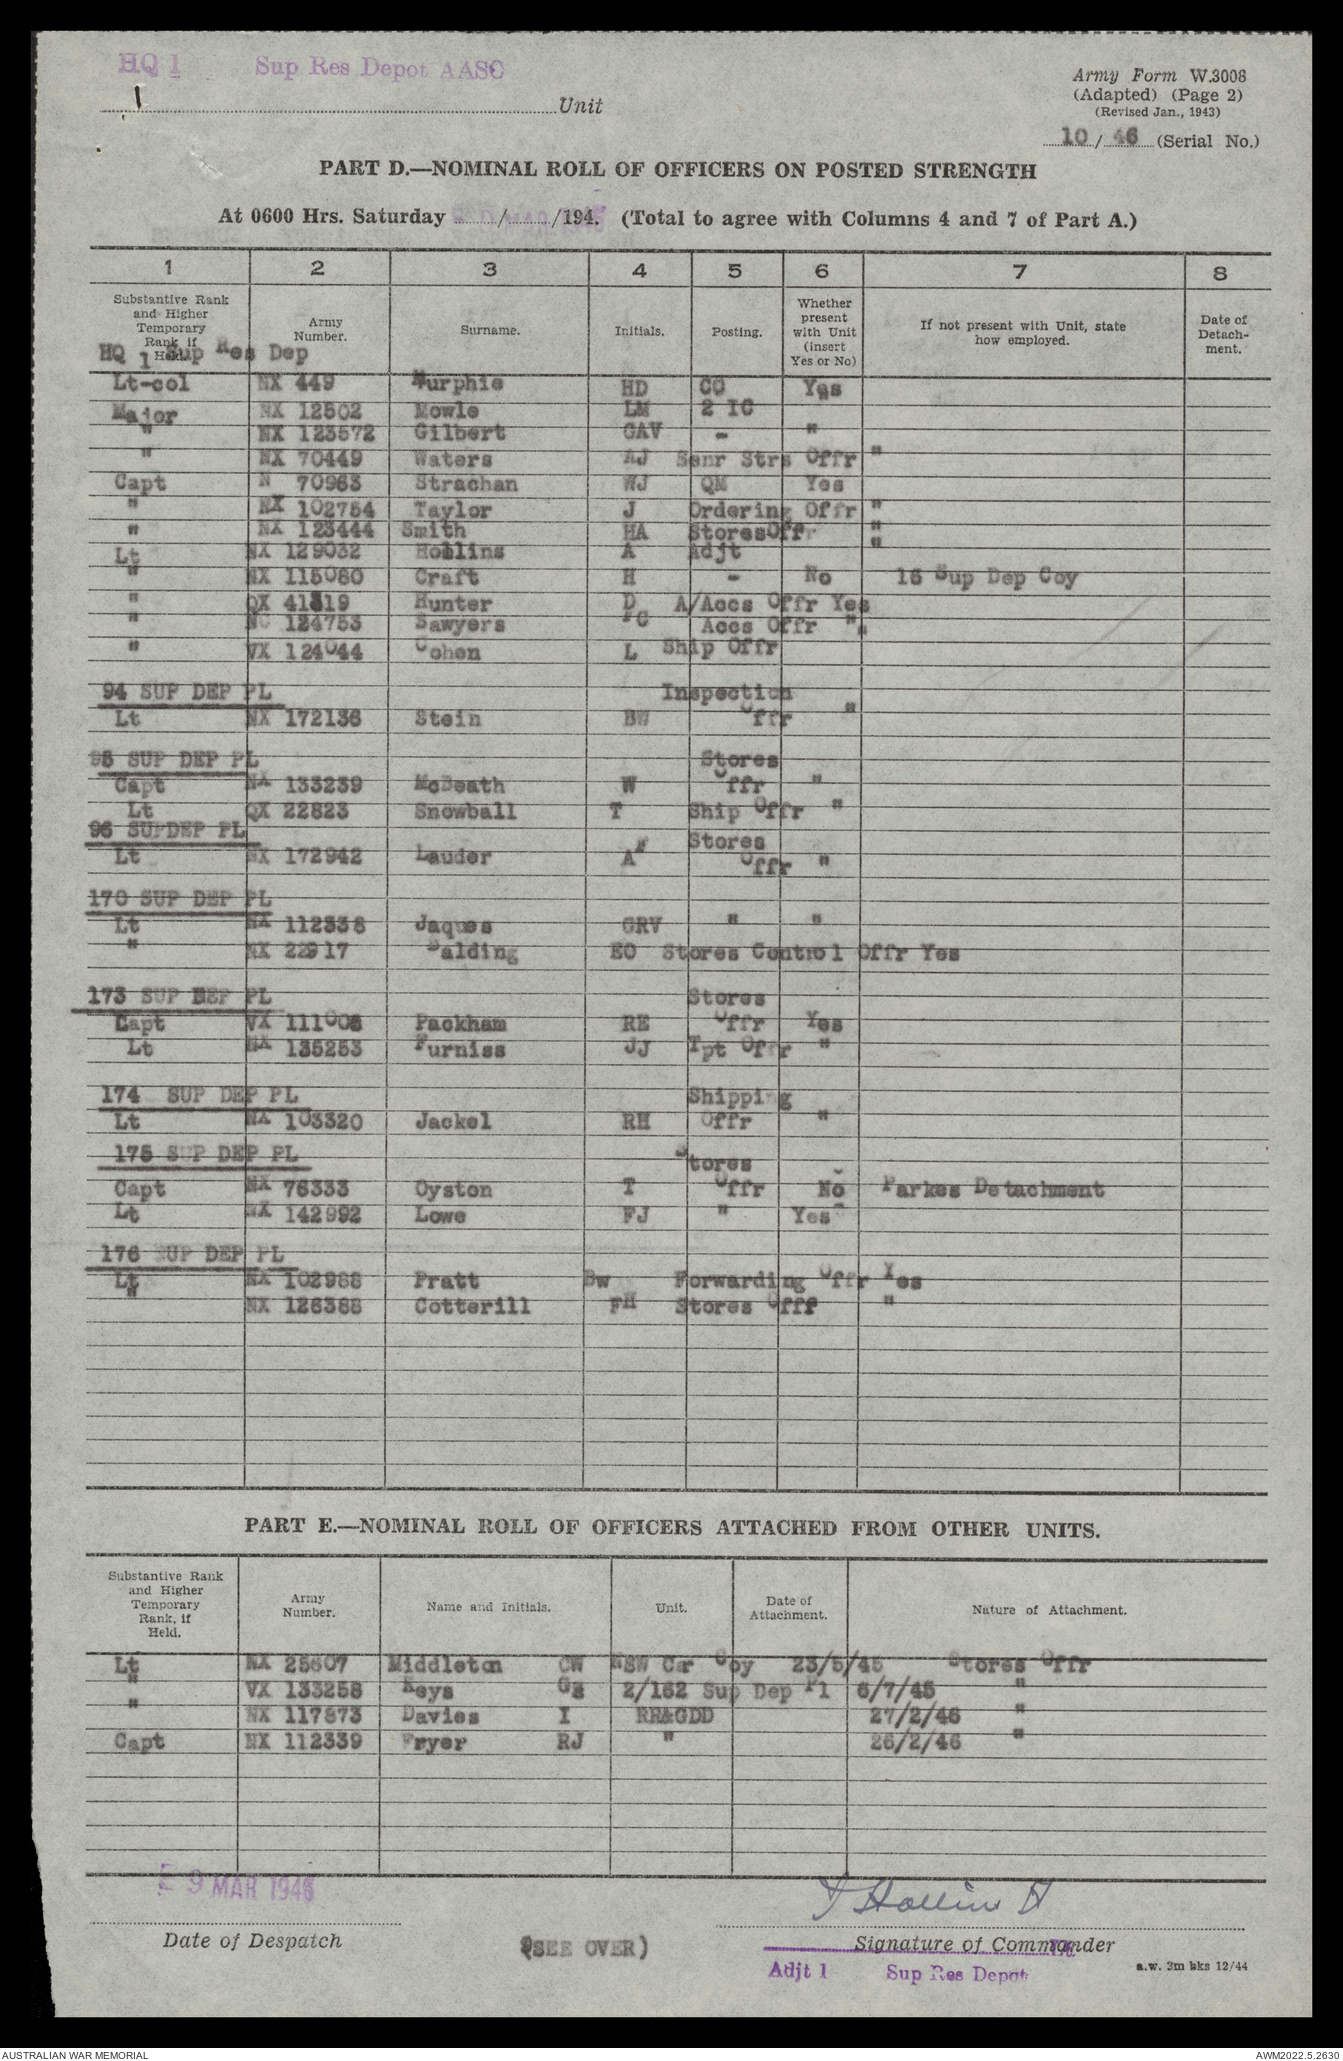 HQ 1 Sup Res Depot AASC
Unit
Army Form W.3008
(Adapted) (Page 2)
(Revised Jan., 1943)
10/46 (Serial No.)
PART D.—NOMINAL ROLL OF OFFICERS ON POSTED STRENGTH
At 0600 Hrs. Saturday / /194. (Total to agree with Columns 4 and 7 of Part A.)
1 2 3 4 5 6 7 8
Substantive Rank and Higher Temporary Rank if Held. Army Number. Surname. Initials. Posting. Whether present with Unit (insert Yes or No) If not present with Unit, state how employed. Date of Detach-ment.
HQ 1 Sup Res Dep
Lt-col NX 449 Murphie HD CO Yes
Major NX 12502 Mowle LM 2 IC
" NX 123572 Gilbert GAV - "
" NX 70449 Waters AJ Senr Strs Offr "
Capt N 70963 Strachan WJ QM Yes
" NX 102754 Taylor J Ordering Offr "
" NX 123444 Smith HA StoresOffr "
Lt NX 129032 Hollins A Adjt "
" NX 115080 Craft H - No 16 Sup Dep Coy
" QX 41319 Hunter D A/Accs Offr Yes
" NC 124753 Sawyers FC Accs Offr "
" VX 124044 Cohen L Ship Offr "
94 SUP DEP PL Inspection
Lt NX 172136 Stein BW Offr "
95 SUP DEP PL Stores
Capt NX 133239 McBeath W Offr "
Lt QX 22823 Snowball T Ship Offr "
96 SUPDEP PL Stores
Lt NX 172942 Lauder AF Offr "
170 SUP DEP PL
Lt NX 112338 Jaques GRV " "
" NX 22917 Balding EO Stores Control Offr Yes
173 SUP DEP PL Stores
Capt VX 111008 Packham RE Offr Yes
Lt NX 135253 Furniss JJ Tpt Offr "
174 SUP DEP PL Shipping
Lt NX 103320 Jackel RH Offr "
175 SUP DEP PL Stores
Capt NX 76333 Oyston T Offr No Parkes Detachment
Lt NX 142992 Lowe FJ " Yes
176 SUP DEP PL
Lt NX 102988 Pratt Bw Forwarding Offr Yes
" NX 126388 Cotterill FH Stores Offf "
PART E.—NOMINAL ROLL OF OFFICERS ATTACHED FROM OTHER UNITS.
Substantive Rank and Higher Temporary Rank, if Held. Army Number. Name and Initials. Unit. Date of Attachment. Nature of Attachment.
Lt NX 25607 Middleton CW NSW Car Coy 23/5/45 Stores Offr
" VX 133258 Keys GS 2/162 Sup Dep Pl 6/7/45 "
" NX 117873 Davies I RH&GDD 27/2/46 "
Capt NX 112339 Fryer RJ " 26/2/46 "
9 MAR 1946
Date of Despatch
(SEE OVER)
Hollins Lt
Signature of Commander
Adjt 1 Sup Res Depot
a.w. 3m bks 12/44
AUSTRALIAN WAR MEMORIAL
AWM2022.5.2630